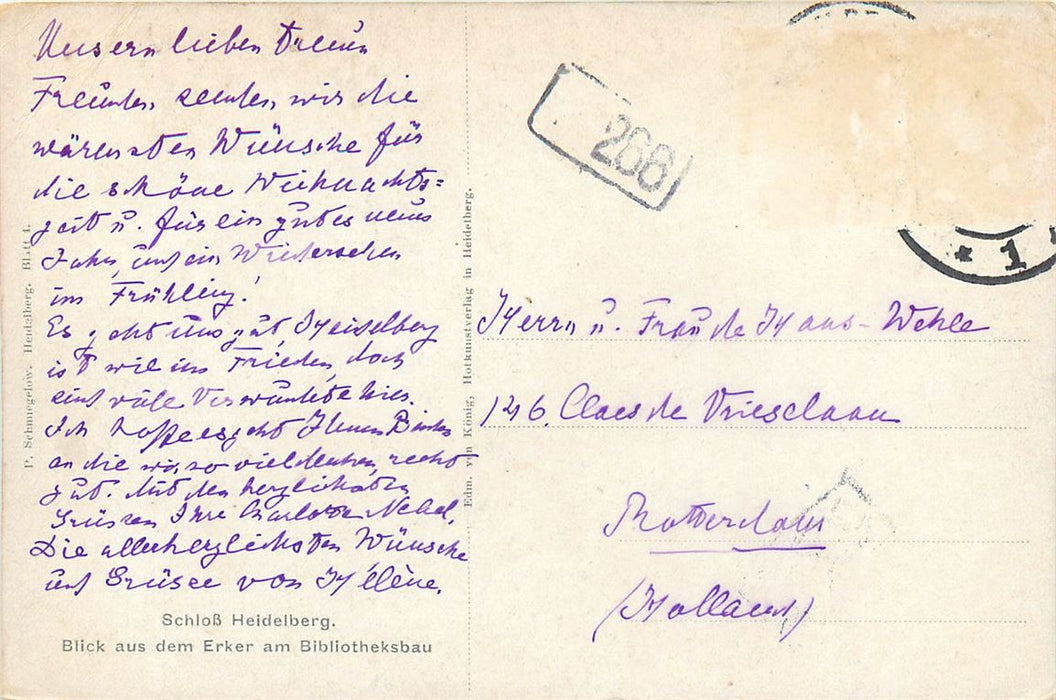 Unsern lieben treuen
Freunden senden wir die
wärmsten Wünsche für
die schöne Weihnachts=
zeit u. für ein gutes neues
Jahr, und ein Wiedersehen
im Frühling!
Es geht uns gut, Heidelberg
ist wie im Frieden, doch
sind viele Verwundete hier.
Ich hoffe es geht Ihnen Beiden
an die wir so viel denken, recht
gut. Mit den herzlichsten
Grüssen Ihre Charlotte Nebel.
Die allerherzlichsten Wünsche
und Grüsse von Hélène.
Schloß Heidelberg.
Blick aus dem Erker am Bibliotheksbau
P. Schmiegelow, Heidelberg. Blatt 4.
Edm. von König, Hofkunstverlag in Heidelberg.
266
* 1
Herrn u. Frau de Haas-Wehle
126. Claes de Vrieselaan
Rotterdam
(Holland)